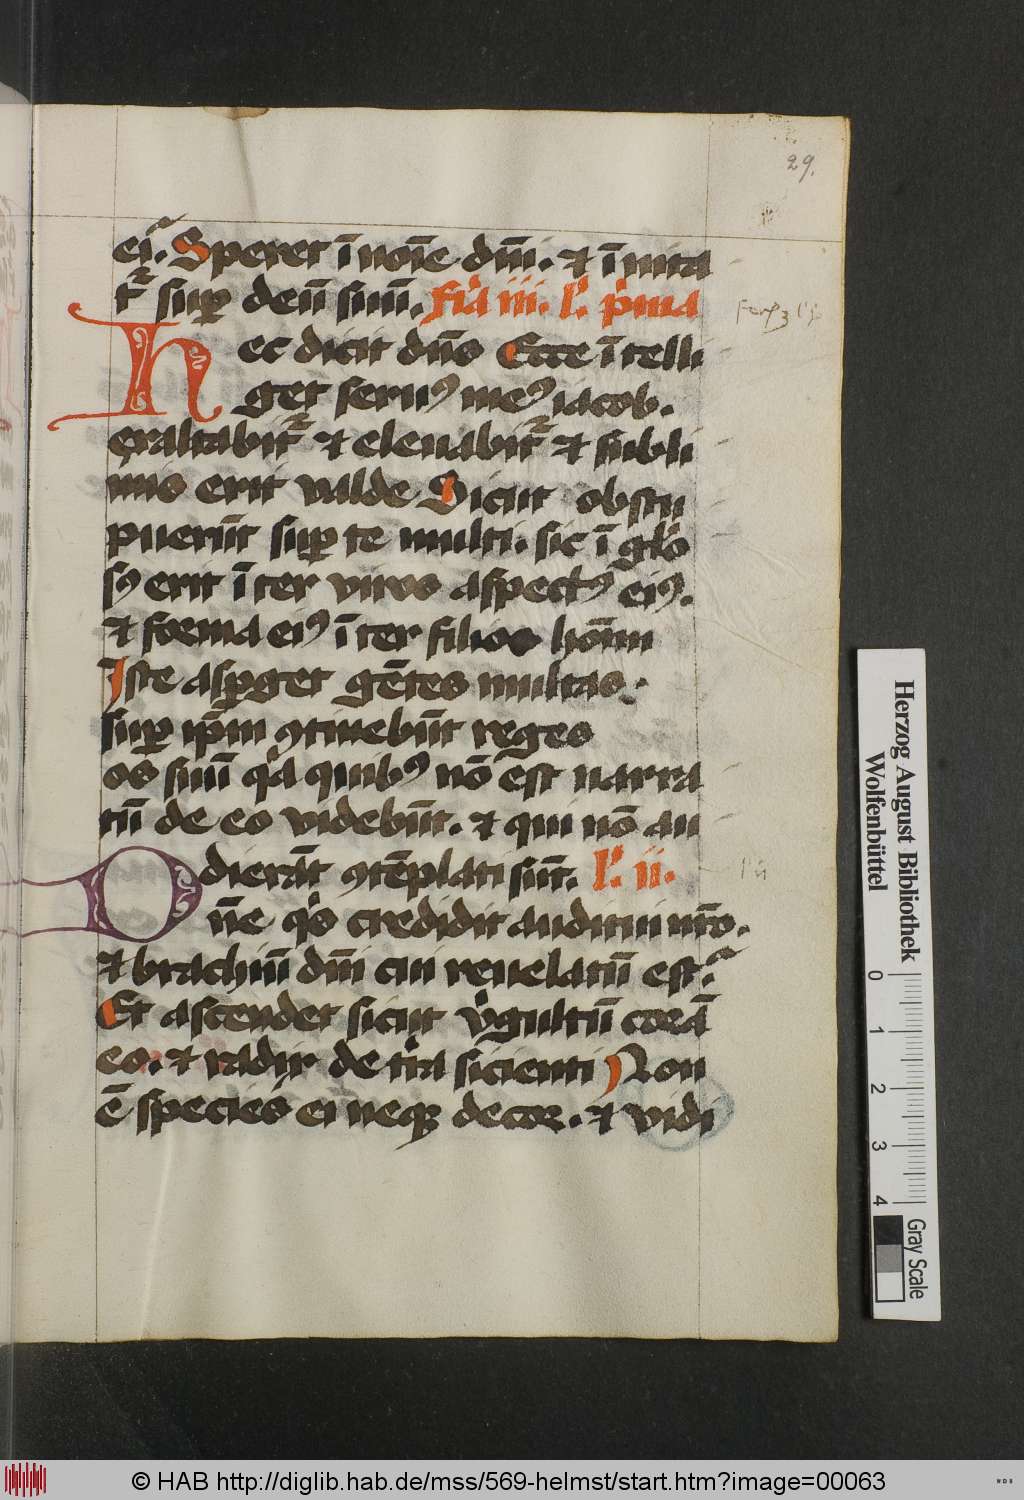 29.
ei᷑. Speret ī noīe dn̄i. ⁊ īnita
t᷑ suꝑ deū suū. fīa iii. l̄. p̄ma
Hec dicit dn̄s Ecce ītelli
get seruꝰ meꝰ iacob.
exaltabit᷑ ⁊ eleuabit᷑ ⁊ subli
mis erit valde Sicut obstu
puerūt suꝑ te multi. sic ī glo᷒
sꝰ erit īter viros aspectꝰ eiꝰ.
⁊ forma eiꝰ īter filios hoīm
Iste asꝑget gētes multas.
suꝑ ip̄m ꝯtinebūt reges
os suū q̄a quibꝰ nō est narra
tū de eo videbūt. ⁊ qui nō au
dierāt ꝯtēplati sūt. l̄. ii.
Dn̄e qͥs credidit auditui nr̄o.
⁊ brachiū dn̄i cui reuelatū est.
Et ascendet sicut vͥgultū corā
eo. ⁊ radix de tr̄a sicienti Non
ē species ei neqꝫ decor. ⁊ vidi
Herzog August Bibliothek
Wolfenbüttel
0 1 2 3 4
Gray Scale
© HAB http://diglib.hab.de/mss/569-helmst/start.htm?image=00063